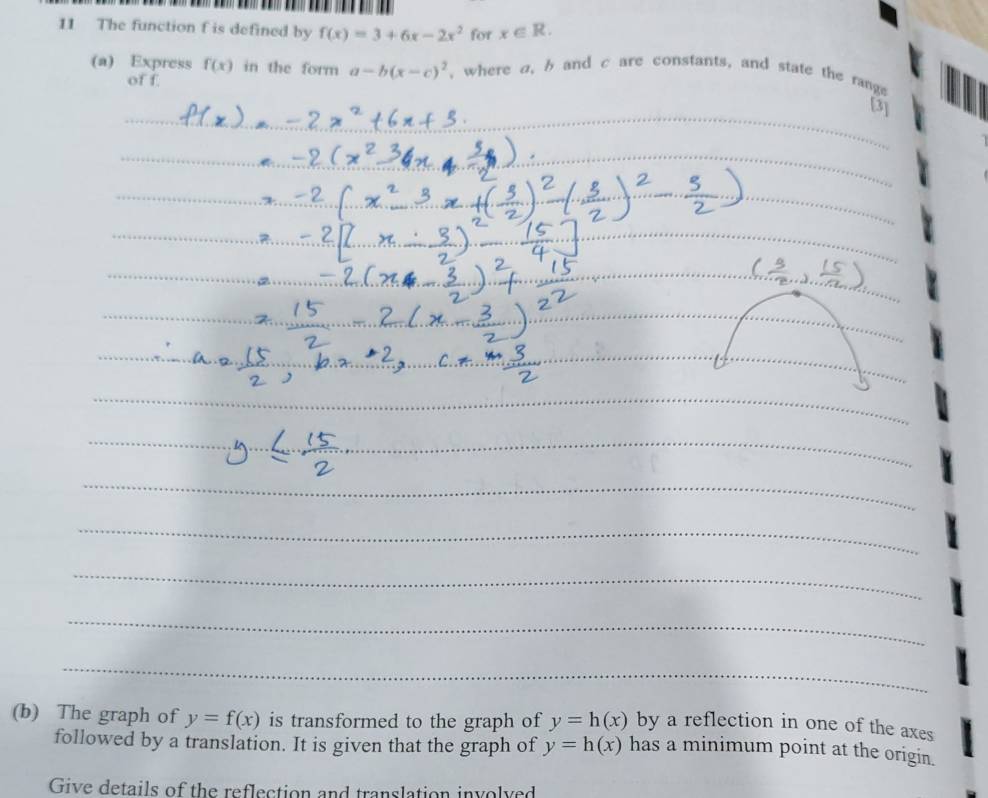 11 The function f is defined by f(x) = 3 + 6x − 2x² for x ∈ ℝ.
(a) Express f(x) in the form a − b(x − c)², where a, b and c are constants, and state the range
of f.
[3]
f(x) = -2x² + 6x + 3.
= -2(x² 3x
= -2(x² - 3x + (3/2)² - (3/2)² - 3/2)
= -2[(x - 3/2)² - 15/4]
= -2(x - 3/2)² + 15/2
(3/2, 15/2)
= 15/2 - 2(x - 3/2)²
∴ a = 15/2, b = 2, c = 3/2
y ≤ 15/2
(b) The graph of y = f(x) is transformed to the graph of y = h(x) by a reflection in one of the axes
followed by a translation. It is given that the graph of y = h(x) has a minimum point at the origin.
Give details of the reflection and translation involved